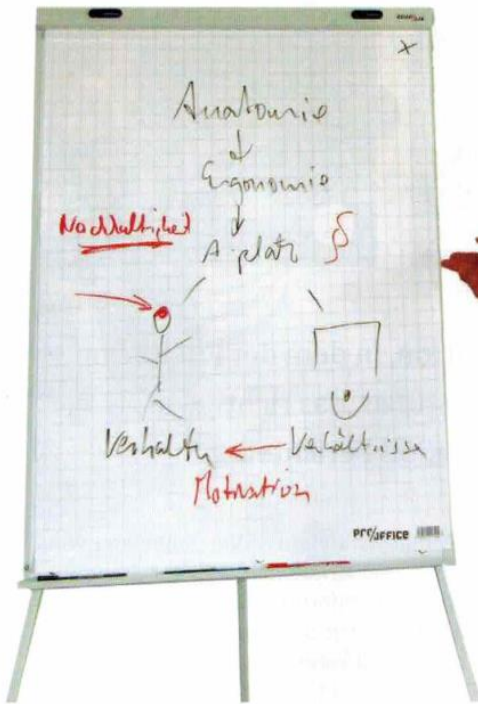 Anatomie
Ergonomie
Nachhaltigkeit
A-platz §
Verhalten Verhältnisse
Motivation
pro/office